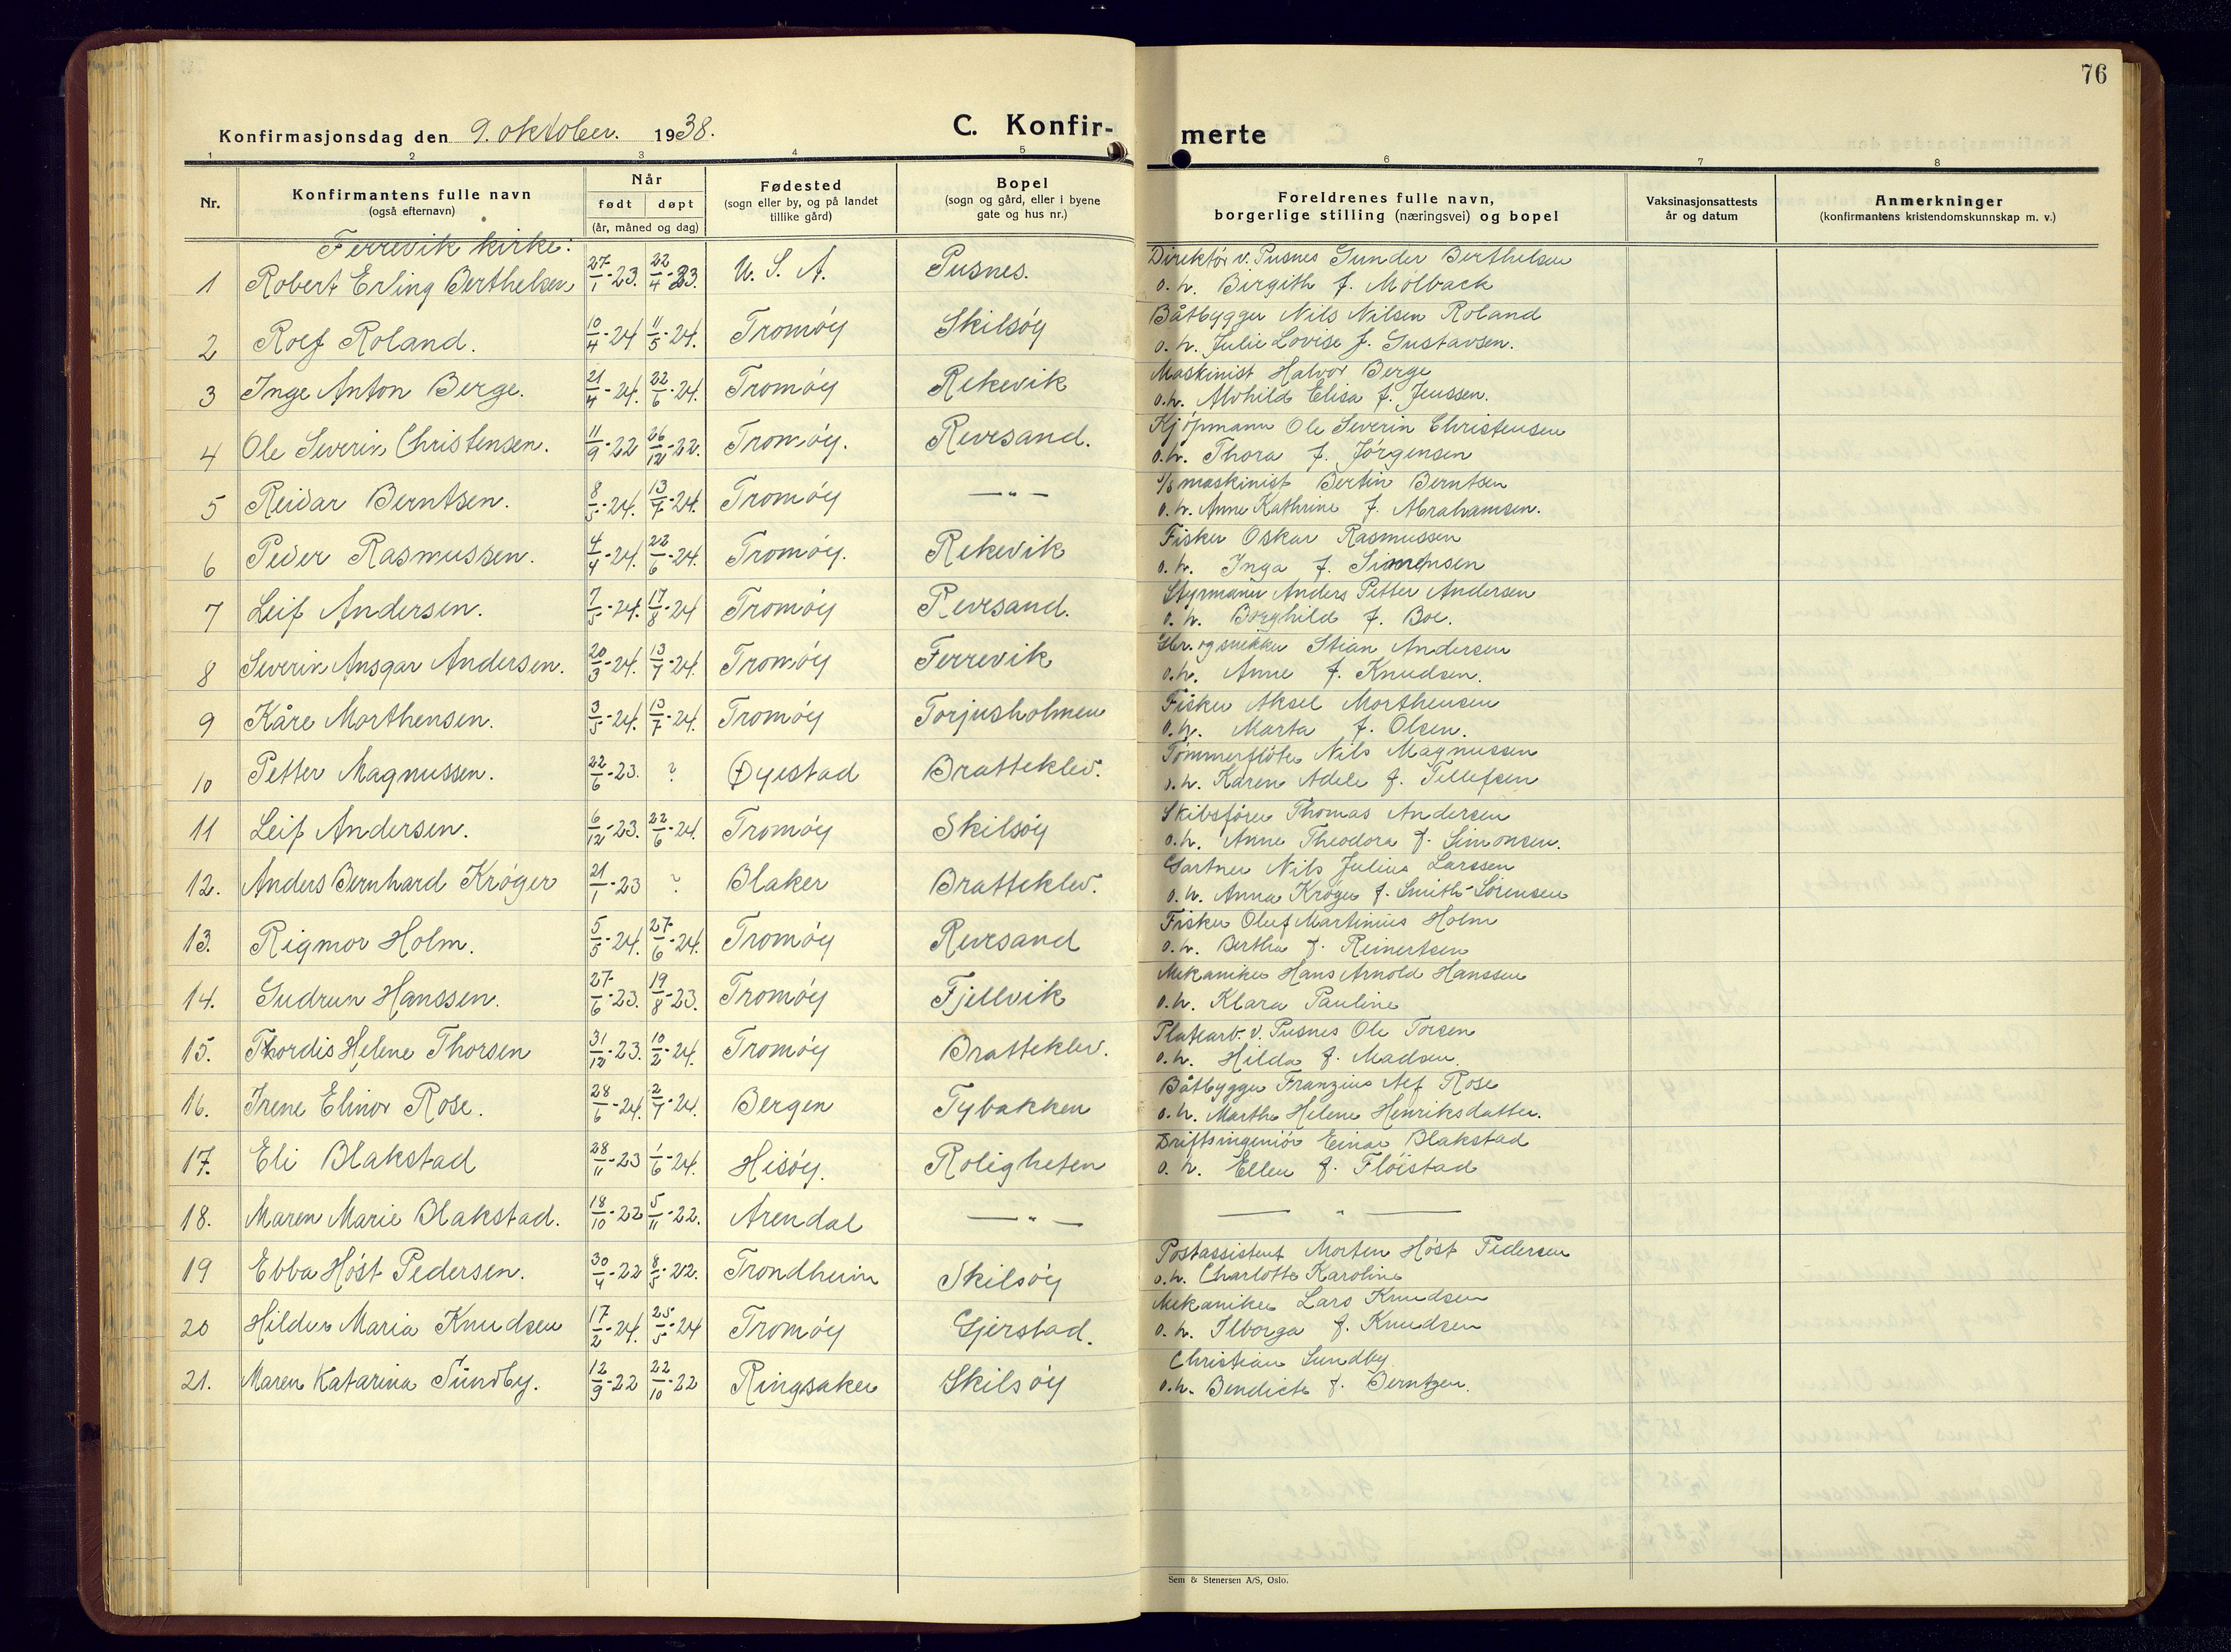 76
Konfirmasjonsdag den 9. oktober. 1938.
C. Konfir- merte
1 2 3 4 5 6 7 8
Nr. Konfirmantens fulle navn (også efternavn) Når født døpt (år, måned og dag) Fødested (sogn eller by, og på landet tillike gård) Bopel (sogn og gård, eller i byene gate og hus nr.) Foreldrenes fulle navn, borgerlige stilling (næringsvei) og bopel Vaksinasjonsattests år og datum Anmerkninger (konfirmantens kristendomskunnskap m. v.)
Færrevik kirke:
1 Robert Erling Berthelsen 27/1-23. 22/4-23. U. S. A. Pusnes. Direktör v. Pusnes Gunder Berthelsen
o. h. Birgith f. Mölback
2 Rolf Roland. 10/4-24 11/5-24. Tromöy Skilsöy Båtbygger Nils Nilsen Roland
o. h. Julie Lovise f. Gustavsen.
3 Inge Anton Berge. 21/4-24. 22/6-24. Tromöy Rekevik Maskinist Halvor Berge
o. h. Alvhild Elisa f. Jenssen.
4 Ole Severin Christensen. 11/9-22 26/12-22. Tromöy. Revesand. Kjöpmann Ole Severin Christensen
o. h. Thora f. Jörgensen
5 Reidar Berntsen. 8/5-24. 13/7-24. Tromöy —"— maskinist Bertin Berntsen
o. h. Anne Kathrine f. Abrahamsen.
6 Peder Rasmussen. 4/4-24. 22/6-24. Tromöy. Rekevik Fisker Oskar Rasmussen
o. h. Inga f.
7 Leif Andersen. 7/5-24. 17/8-24 Tromöy Revesand. Styrmann Anders Petter Andersen
o. h. Borghild f. Boe.
8 Severin Ansgar Andersen. 20/3-24. 13/7-24. Tromöy Færrevik snekker Stian Andersen
o. h. Anne f. Knudsen.
9 Kåre Morthensen. 3/5-24. 13/7-24. Tromöy Torjusholmen Fisker Aksel Morthensen
o. h. Marta f. Olsen.
10 Petter Magnussen. 22/6-23. ? Øyestad Bratteklev. Tömmerflöter Nils Magnussen
o. h. Karen Adele f. Tellefsen
11 Leif Andersen. 6/12-23. 22/6-24. Tromöy Skilsöy Skibsförer Thomas Andersen
o. h. Anne Theodora f. Simonsen.
12. Anders Bernhard Kröger 21/1-23 ? Blaker Bratteklev. Gartner Nils Julius Larssen
o. h. Anna Kröger f. Smith-Sörensen
13. Rigmor Holm. 5/5-24. 27/6-24. Tromöy Revesand Fisker Oluf Martinius Holm
o. h. Bertha f. Reinertsen
14. Gudrun Hanssen. 27/6-23. 19/8-23. Tromöy Fjellvik Mekaniker Hans Arnold Hanssen
o. h. Klara Pauline
15. Thordis Helene Thorsen 31/12-23. 10/2-24. Tromöy Bratteklev. Platearb. v. Pusnes Ole Torsen
o. h. Hilda f. Madsen.
16. Irene Elinor Rose. 28/6-24. 2/7-24. Bergen Tybakken Båtbygger Franzius Alf Rose
o. h. Marthe Helene Henriksdatter.
17. Eli Blakstad 28/11-23 1/6-24. Hisöy. Roligheten Driftsingeniör Einar Blakstad
o. h. Ellen f. Flöistad
18. Maren Marie Blakstad. 18/10-22 5/11-22. Arendal —"— —"—
19 Ebba Höst Pedersen. 30/4-22 8/5-22. Trondheim Skilsöy Postassistent Morten Höst Pedersen
o. h. Charlotte Karoline
20 Hildur Maria Knudsen 17/2-24. 25/5-24 Tromöy Gjerstad. Mekaniker Lars Knudsen
o. h. Ilborga f. Knudsen
21. Maren Katarina Sundby. 12/9-22 22/10-22 Ringsaker Skilsöy Christian Sundby
o. h. Bendicte f. Berntzen.
Sem & Stenersen A/S, Oslo.